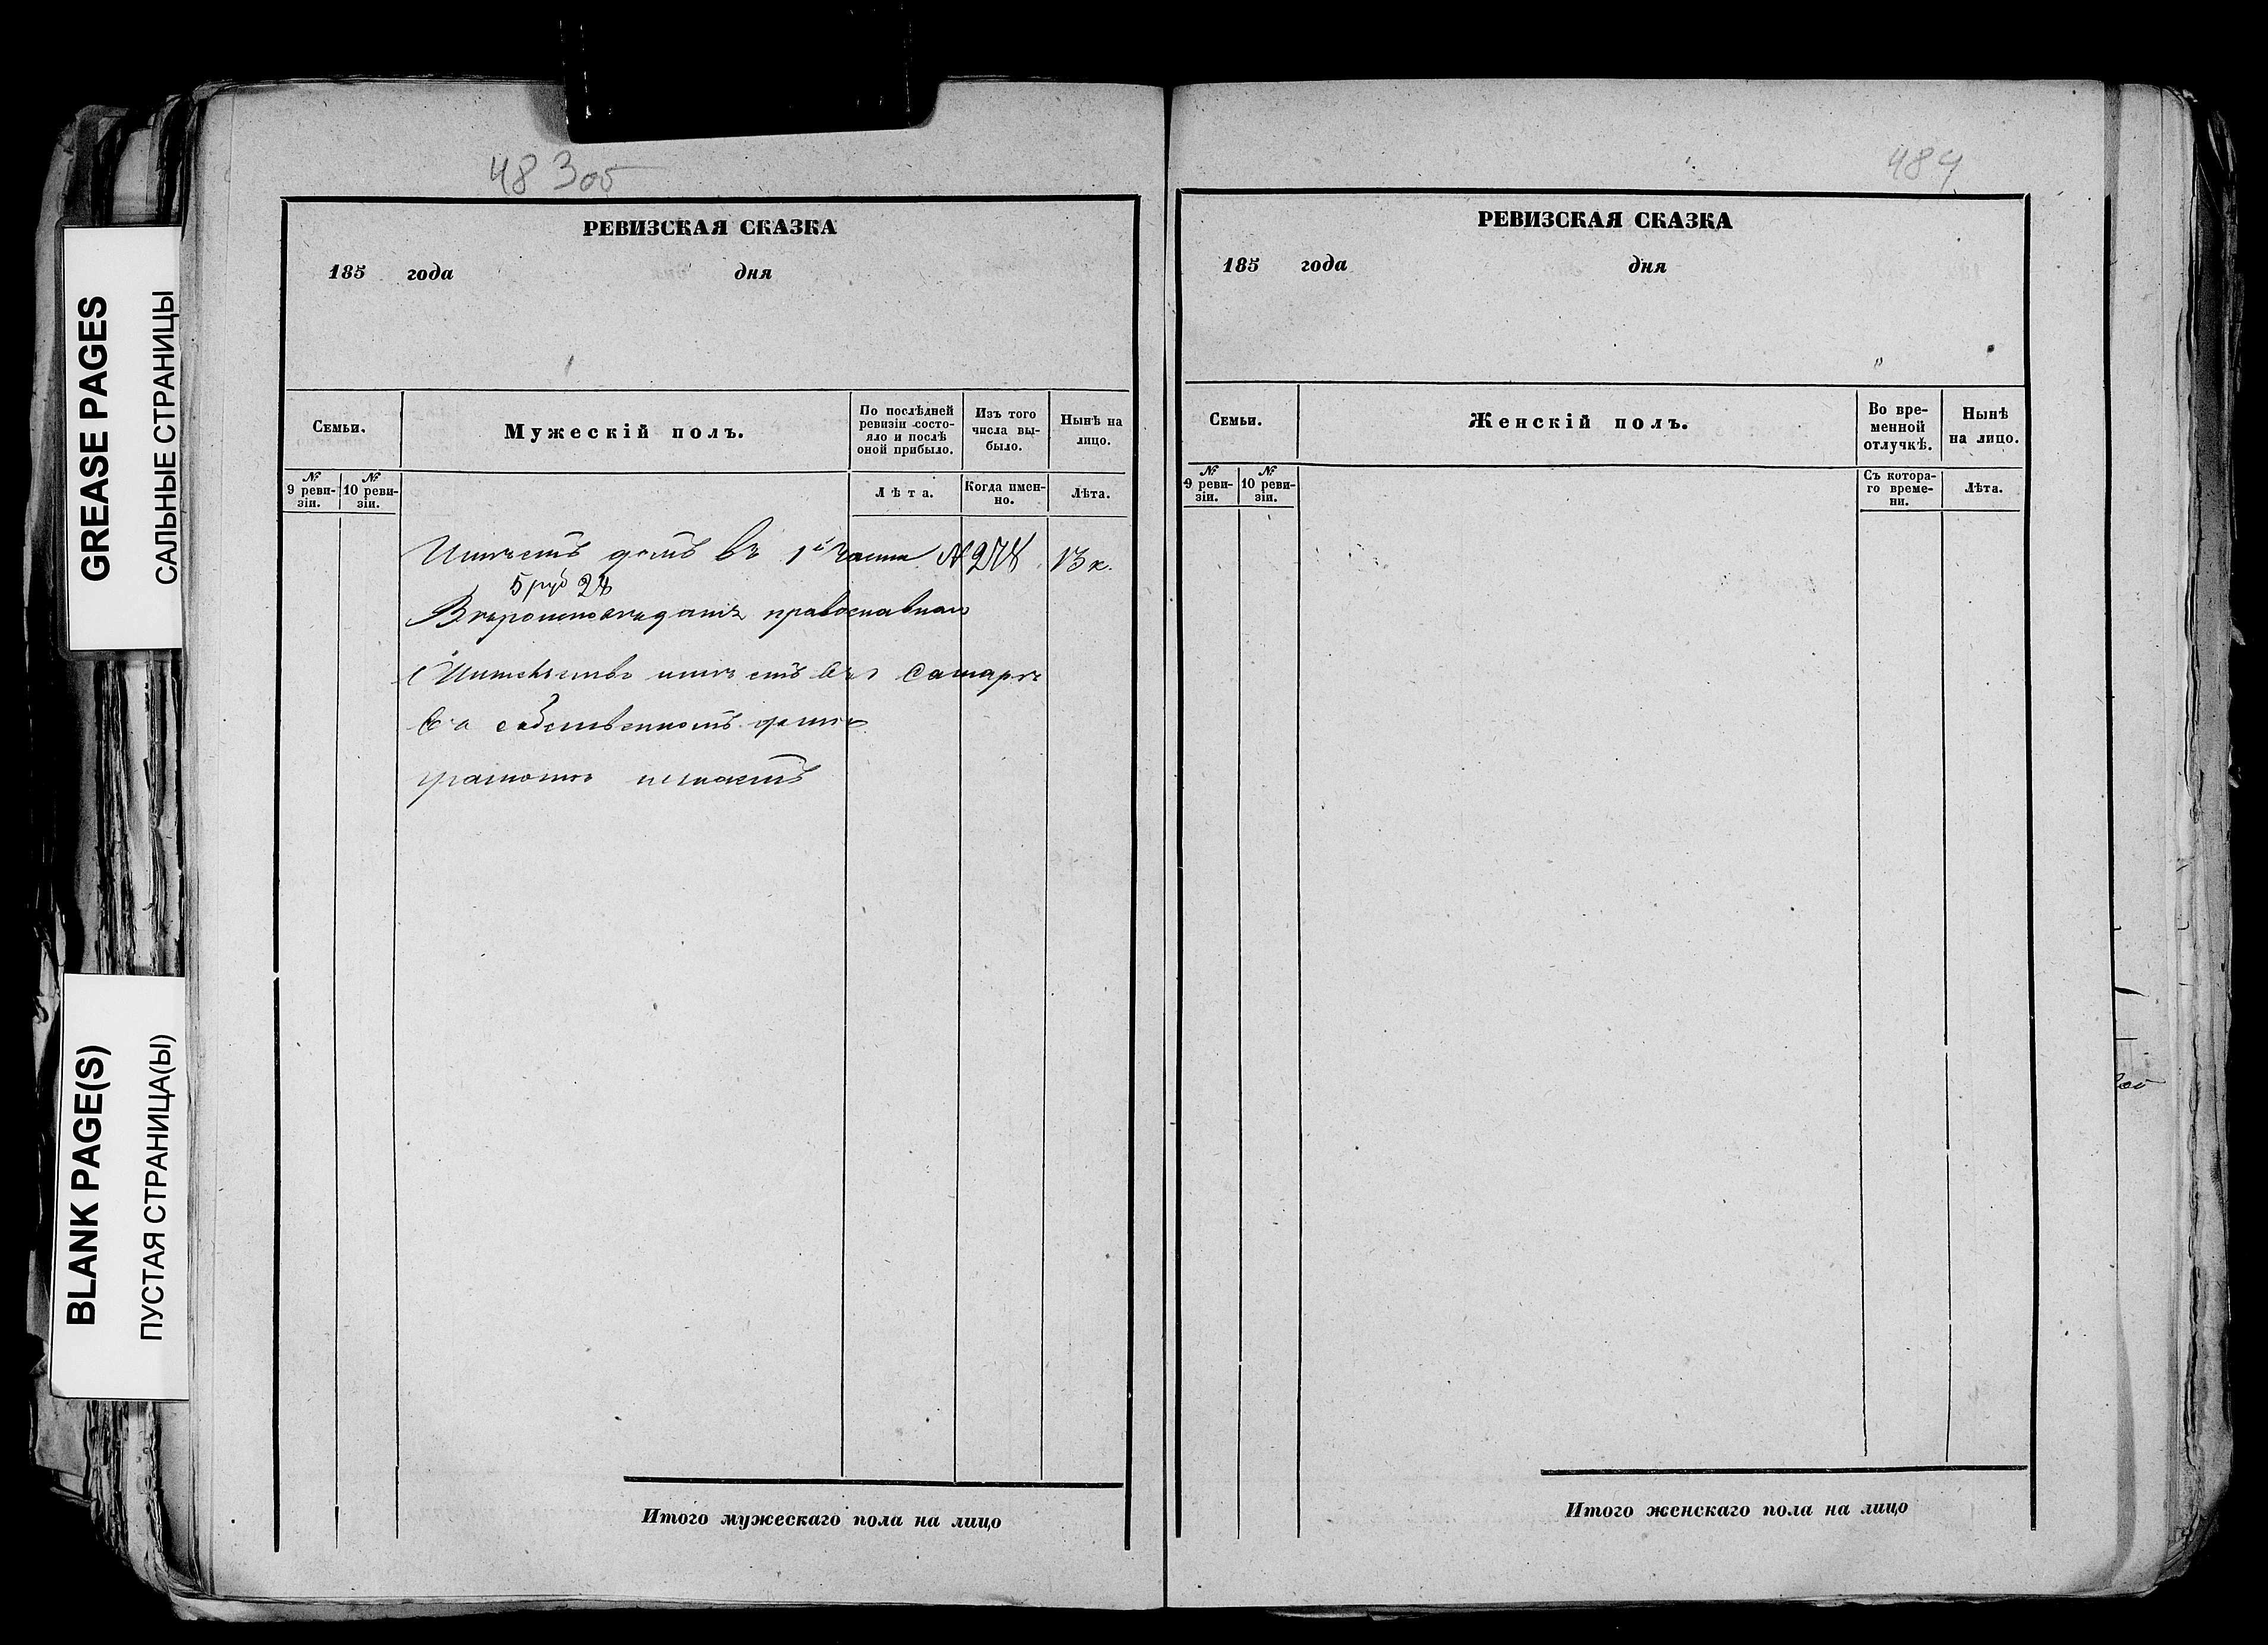 GREASE PAGES
САЛЬНЫЕ СТРАНИЦЫ
BLANK PAGE(S)
ПУСТАЯ СТРАНИЦА(Ы)
483об
РЕВИЗСКАЯ СКАЗКА
185 года дня
Семьи.
Мужескій полъ.
По послѣдней ревизіи состояло и послѣ оной прибыло.
Изъ того числа выбыло.
Нынѣ на лицо.
№ 9 ревизіи.
№ 10 ревизіи.
Лѣта.
Когда именно.
Лѣта.
Имѣетъ домъ въ 1й части № 278 13 к.
5 руб 28
Вѣроисповѣданія православнаго
Жительство имѣетъ въ Самарѣ
въ собственномъ домѣ
грамотѣ незнаетъ
Итого мужескаго пола на лицо
484
РЕВИЗСКАЯ СКАЗКА
185 года дня
Семьи.
Женскій полъ.
Во временной отлучкѣ.
Нынѣ на лицо.
№ 9 ревизіи.
№ 10 ревизіи.
Съ котораго времени.
Лѣта.
Итого женскаго пола на лицо